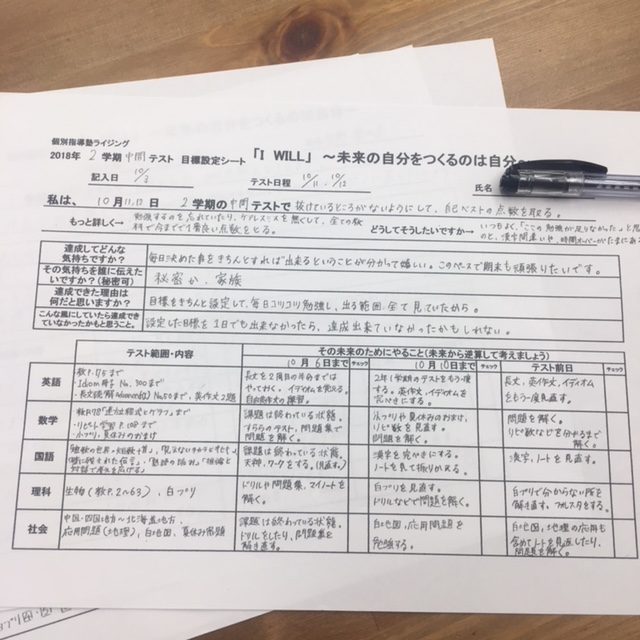 個別指導塾ライジング
2018年 2 学期 中間 テスト 目標設定シート 「I WILL」 ～未来の自分をつくるのは自分
記入日 10/3 テスト日程 10/11・10/12 氏名
私は、10月11,12日 2学期の中間テストで 抜けているところがないようにして、自己ベストの点数を取る。
もっと詳しく→ 勉強するのを忘れていたり、ケアレスミスを無くして、全ての教科で今までで1番良い点数をとる。
どうしてそうしたいですか？→ いつもよく、「ここの勉強が足りなかった」と思
のと、漢字間違いや、
達成してどんな気持ちですか？ 毎日決めた事をきちんとすれば出来るということが分かって嬉しい。このペースで期末も頑張りたいです。
その気持を誰に伝えたいですか？（秘密可） 秘密か、家族
達成できた理由は何だと思いますか？ 目標をきちんと設定して、毎日コツコツ勉強し、出る範囲全て見ていたから。
こんな風にしていたら達成できていなかったかもと思うこと。 設定した目標を1日でも出来なかったら、達成出来ていなかったかもしれない。
テスト範囲・内容 その未来のためにやること（未来から逆算して考えましょう）
10月6日まで チェック 10月10日まで チェック テスト前日 チェック
英語 教P.175まで
・Idiom No.300まで
No.50まで、英作文2題
長文を2周目の
やっておく。イディオムを覚える。
自由英作文の練習。
2年1学期のテストをもう1度
する。英作文、イディオムを
完ペキにする。
長文、英作文、イディオム
をもう1度見直す。
数学
夏休みのおまけ
課題は終わっている状態。
すららのテスト、問題集で
問題を解く。
夏休みのおまけ、
リピ数を見直す。
問題を解く。
問題を解く。
リピ数などを分かるまで
解く。
国語
対話で考えを広げる
課題は終わっている状態。
ワークをする。（見直す。）
漢字を完ペキにする。
ノートを見て振りかえる。
漢字、ノートを見直す。
理科 生物（教P.2～63）、白プリ
ドリルや問題集、マイノートを
解く。
白プリを見直す。
ドリルなどで問題を解く。
白プリで分からない所を
解き直す。
社会 中国・四国地方～北海道地方、
応用問題（地理）、白地図、夏休み宿題
課題は終わっている状態。
ドリルをしたり、問題集を
解き直す。
白地図、応用問題を
勉強する。
白地図、地理の応用も
含めてノートを見返したり、
問題を解く。